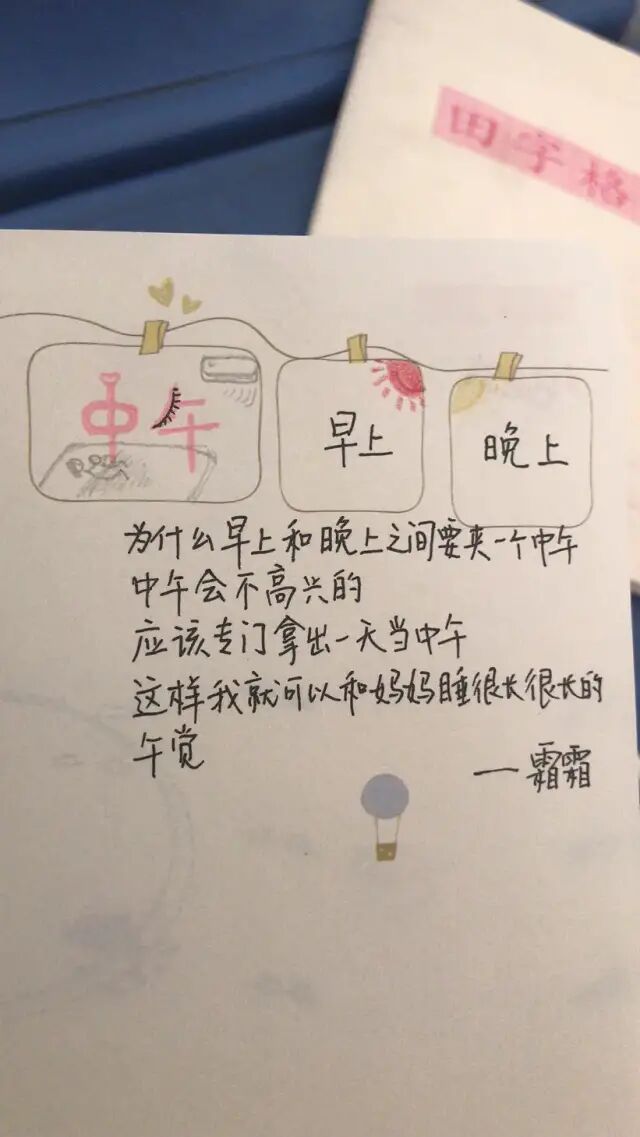 田字格
中午
早上
晚上
为什么早上和晚上之间要夹一个中午
中午会不高兴的
应该专门拿出一天当中午
这样我就可以和妈妈睡很长很长的
午觉
—霜霜